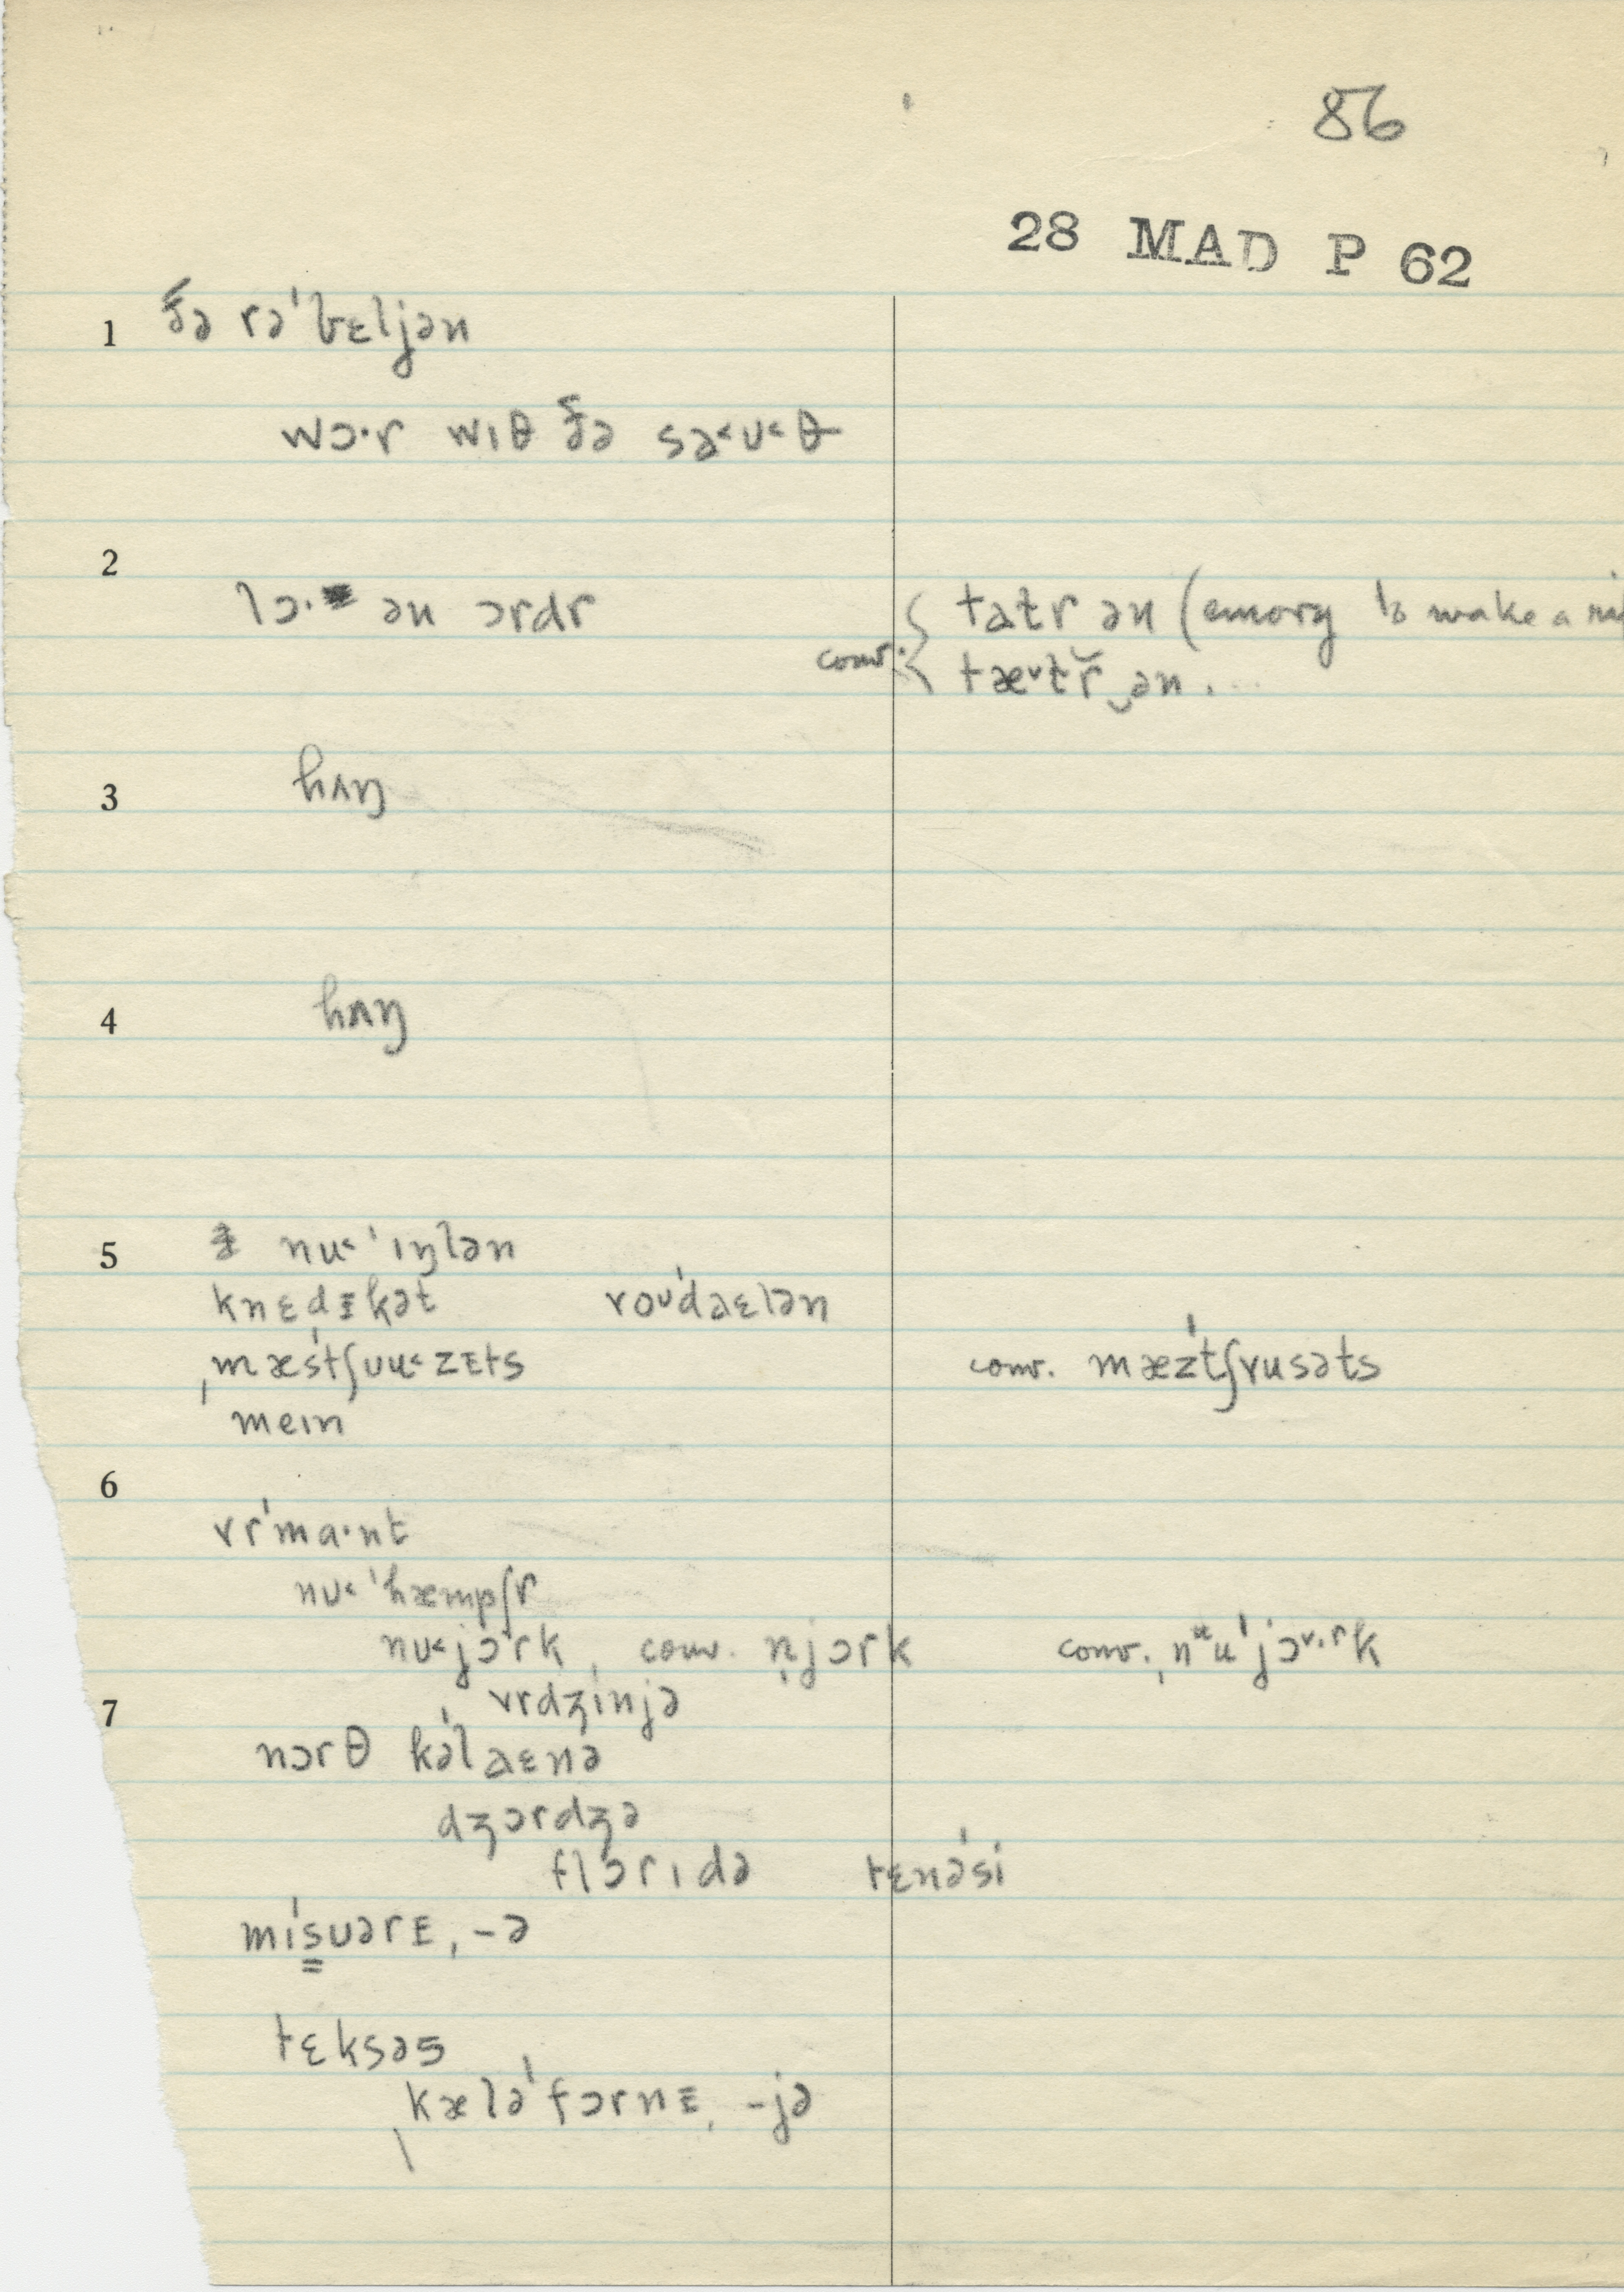 86
28 MAD P 62
1 ðə rəˈbɛljən
wɔ·r wɪθ ðə sa˂ʊ˂θ
2
lɔ· ən ɔrdr
conv. { tatr ən (emory to make a
tæ˅tr̆‿ən ....
3 hʌŋ
4 hʌŋ
5 nu˂ˈɪŋlən
knɛdɪkət roʊˈdaɛlən
ˌmæsˈtʃuu˂zɛts conv. mæzˈtʃrusəts
meɪn
6
vrˈma·nt
nu˂ˈhæmpʃr
nu˂jɔˈrk, conv. n̩jɔrk conv. ˌnᵘuˈjɔ˅·rk
7 vrdʒinjə
nɔrθ kəˈlaɛnə
dʒɔrdʒə
flɔrɪdə tɛnəˈsi
miˈsuərɪ, -ə
tɛksəs
ˌkæləˈfɔrnɪ, -jə